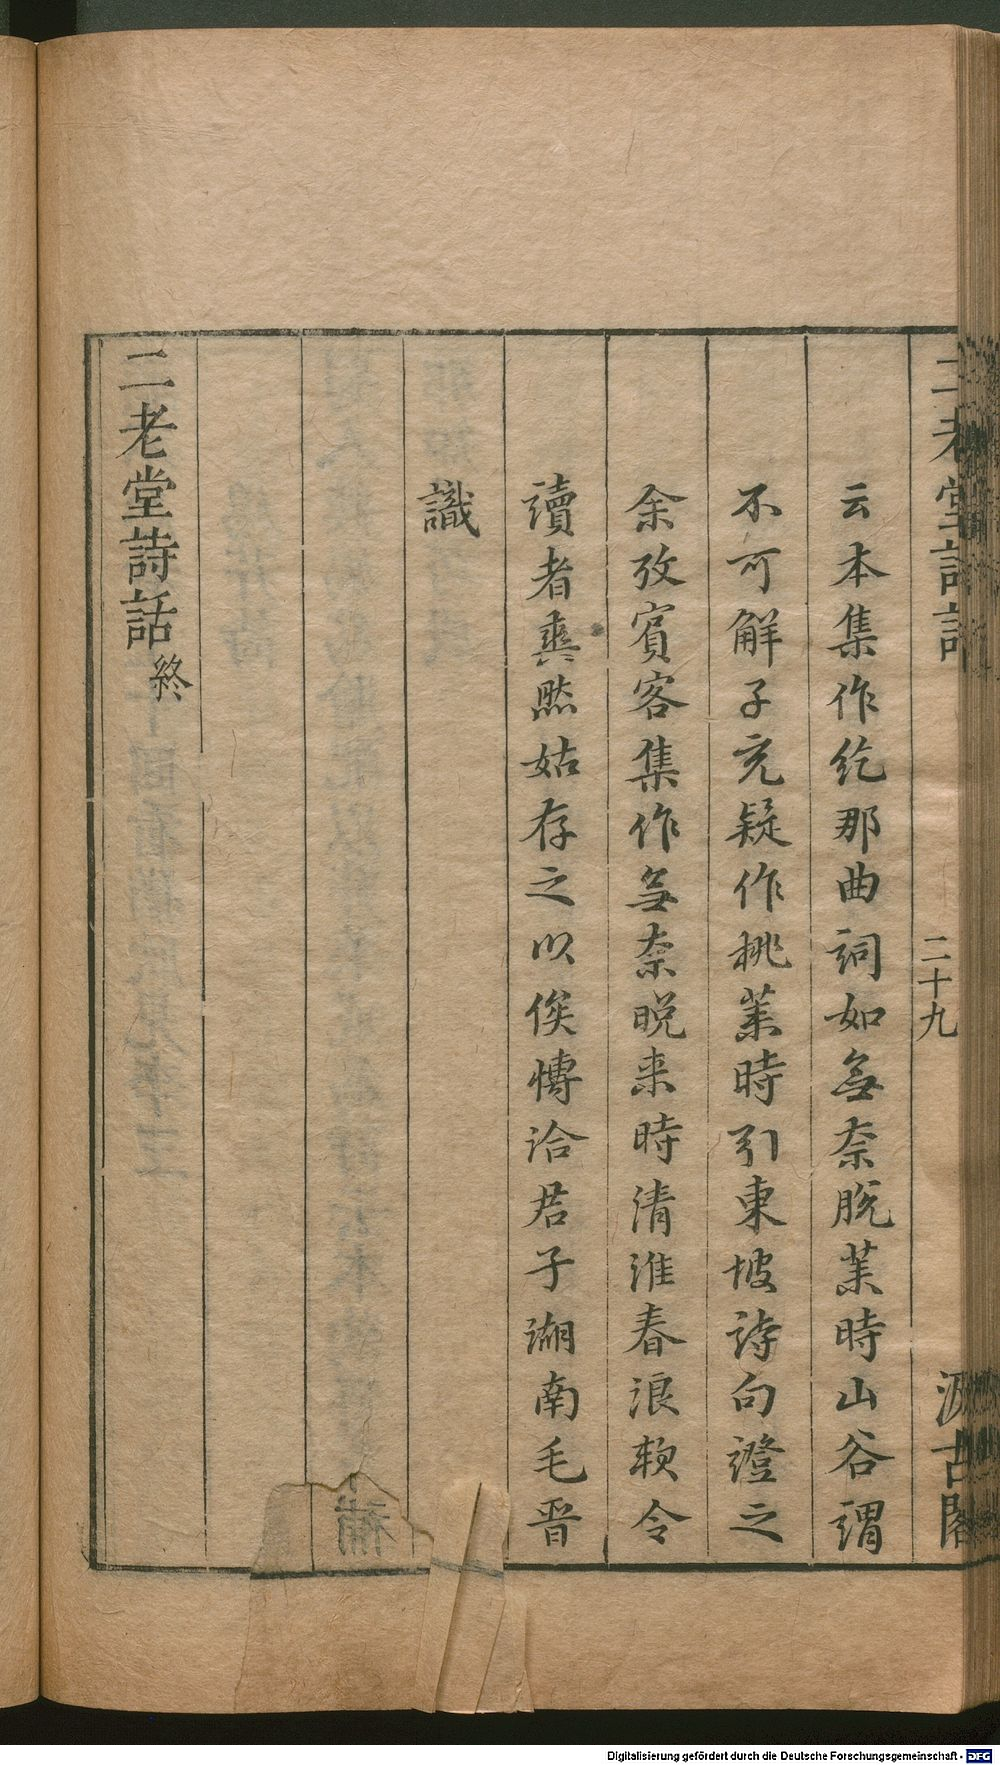 二老堂詩話
二十九
汲古閣
云本集作紇那曲詞如無奈脫葉時山谷謂
不可解子充疑作挑葉時引東坡詩句證之
余攷賓客集作無奈晩来時清淮春浪軟令
讀者爽然姑存之以俟博洽君子湖南毛晉
識
二老堂詩話終
Digitalisierung gefördert durch die Deutsche Forschungsgemeinschaft - DFG